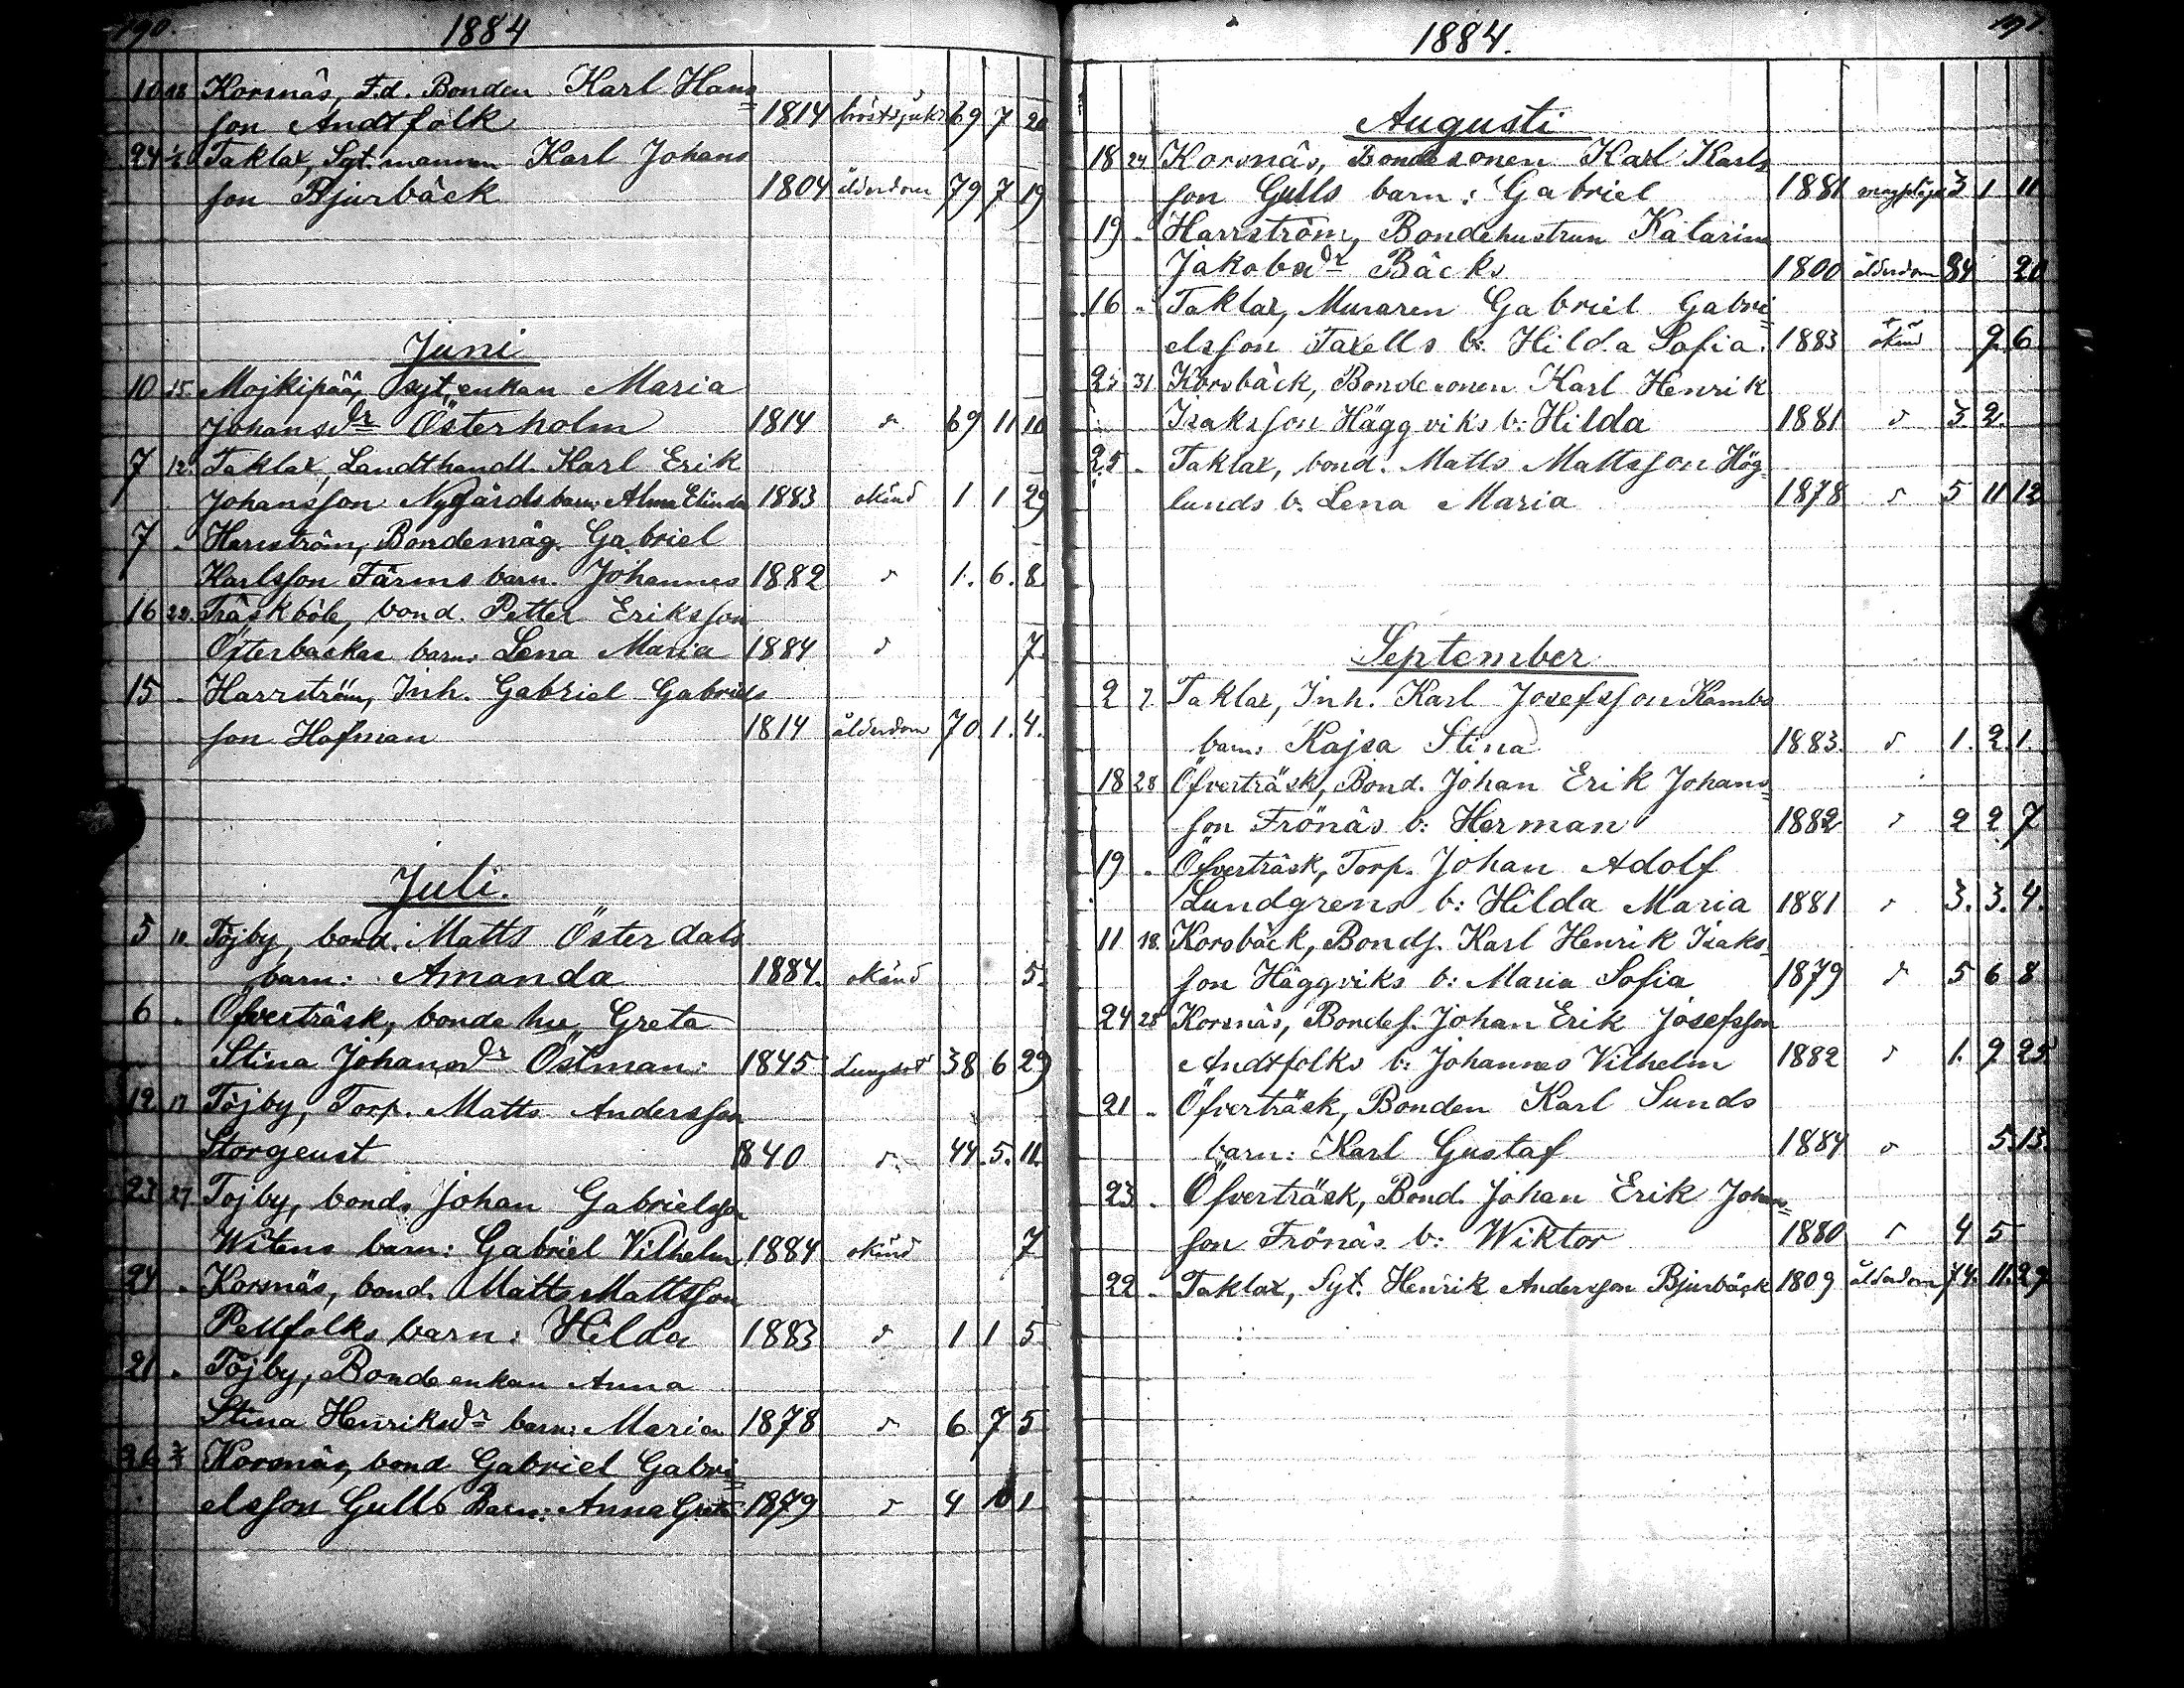 190.
1884
10 18 Korsnäs, F.d. Bonden Karl Hans=
son Andtfolk 1814 bröstsjukd 69 7 20
24 1/6 Taklax, Syt.mannen Karl Johans
son Bjurbäck 1804 ålderdom 79 7 19
Juni
10 15. Mojkipää, syt.enkan Maria
Johansdr Österholm 1814 d 69 11 10
7 12. Taklax, Landthandl. Karl Erik
Johansson Nygårds barn: Alma Elinda 1883 okänd 1 1 29
7 " Harrström, Bondemåg. Gabriel
Karlsson Färms barn. Johannes 1882 d 1. 6. 8
16 22. Träskböle, bond. Petter Eriksson
Österbackas barn: Lena Maria 1884 d 7.
15 " Harrström, Inh. Gabriel Gabriels
son Hofman 1814 ålderdom 70. 1. 4.
Juli.
5 11. Töjby, bond. Matts Österdals
barn: Amanda 1884. okänd 5.
6 " Öfverträsk, bonde hu, Greta
Stina Johansdr Östman: 1845 Lungsot 38 6 29
12 17 Töjby, Torp. Matts Andersson
Storgeust 1840 d. 44. 5. 11.
23 27 Töjby, bonds Johan Gabrielsson
Witens barn: Gabriel Vilhelm 1884 okänd 7
24 " Korsnäs, bond. Matts Mattsson
Pellfolks barn: Hilda 1883 d 1 1 5
21 " Töjby, Bondeenkan Anna
Stina Henriksdr barn: Maria 1878 d 6 7 5
26 Korsnäs, bond Gabriel Gabri=
elsson Gulls Barn: Anna Greta 1879 d 4 10 1
191.
1884.
Augusti
18 24 Korsnäs, Bondesonen Karl Karls
son Gulls barn: Gabriel 1881 magplåga 3 1. 11
19 " Harrström, Bondehustrun Katarina
Jakobsdr Bäcks 1800 ålderdom 84 20
16 " Taklax, Muraren Gabriel Gabri=
elsson Taxells b: Hilda Sofia. 1883 okänd 9. 6.
23 31 Korsbäck, Bondesonen Karl Henrik
Isaksson Häggviks b: Hilda 1881 d 3. 2.
25 " Taklax, bond. Matts Mattsson Hög
lunds b: Lena Maria 1878 d 5 11 12
September
2 7. Taklax, Inh. Karl Josefsson Kambs
barn: Kajsa Stina 1883. d 1. 2. 1.
18 28 Öfverträsk, Bond. Johan Erik Johans=
son Frönäs b: Herman 1882 d 2 2 7
19 " Öfverträsk, Torp. Johan Adolf
Lundgrens b: Hilda Maria 1881 d 3. 3. 4.
11 18. Korsbäck, Bonds. Karl Henrik Isaks=
son Häggviks b: Maria Sofia 1879 d 5 6 8
24 25 Korsnäs, Bondes. Johan Erik Josefsson
Andtfolks b: Johannes Vilhelm 1882 d 1. 9 25.
21 " Öfverträsk, Bonden Karl Sunds
barn: Karl Gustaf 1884 d 5. 13.
23 " Öfverträsk, Bond. Johan Erik Johans=
son Frönäs b: Wiktor 1880 d 4 5
22 " Taklax, Syt. Henrik Andersson Bjurbäck 1809 ålderdom 74. 11. 29